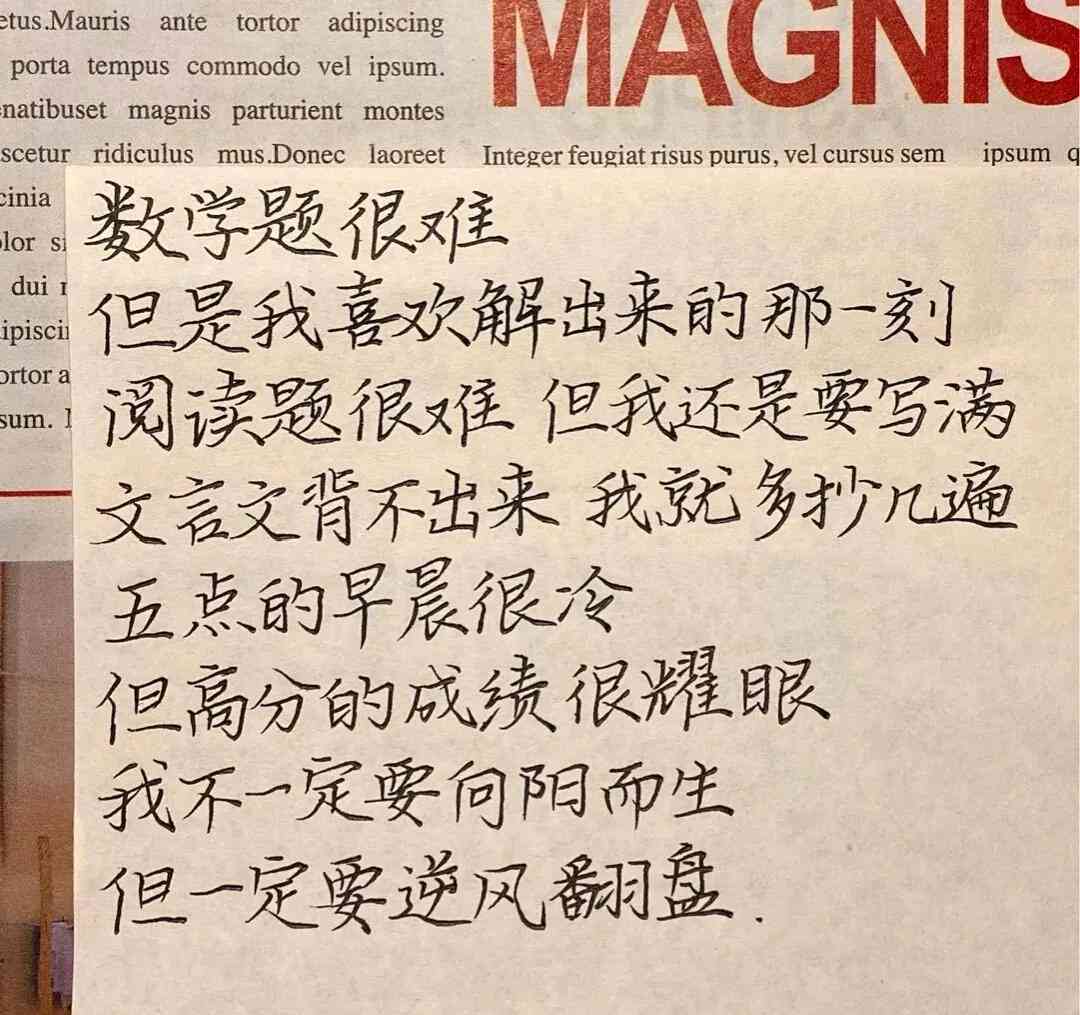 etus.Mauris ante tortor adipiscing
porta tempus commodo vel ipsum.
natibuset magnis parturient montes
scetur ridiculus mus.Donec laoreet
cinia
olor
dui
ipiscin
ortor a
sum.
MAGNIS
Integer feugiat risus purus, vel cursus sem ipsum q
数学题很难
但是我喜欢解出来的那一刻
阅读题很难 但我还是要写满
文言文背不出来 我就多抄几遍
五点的早晨很冷
但高分的成绩很耀眼
我不一定要向阳而生
但一定要逆风翻盘.